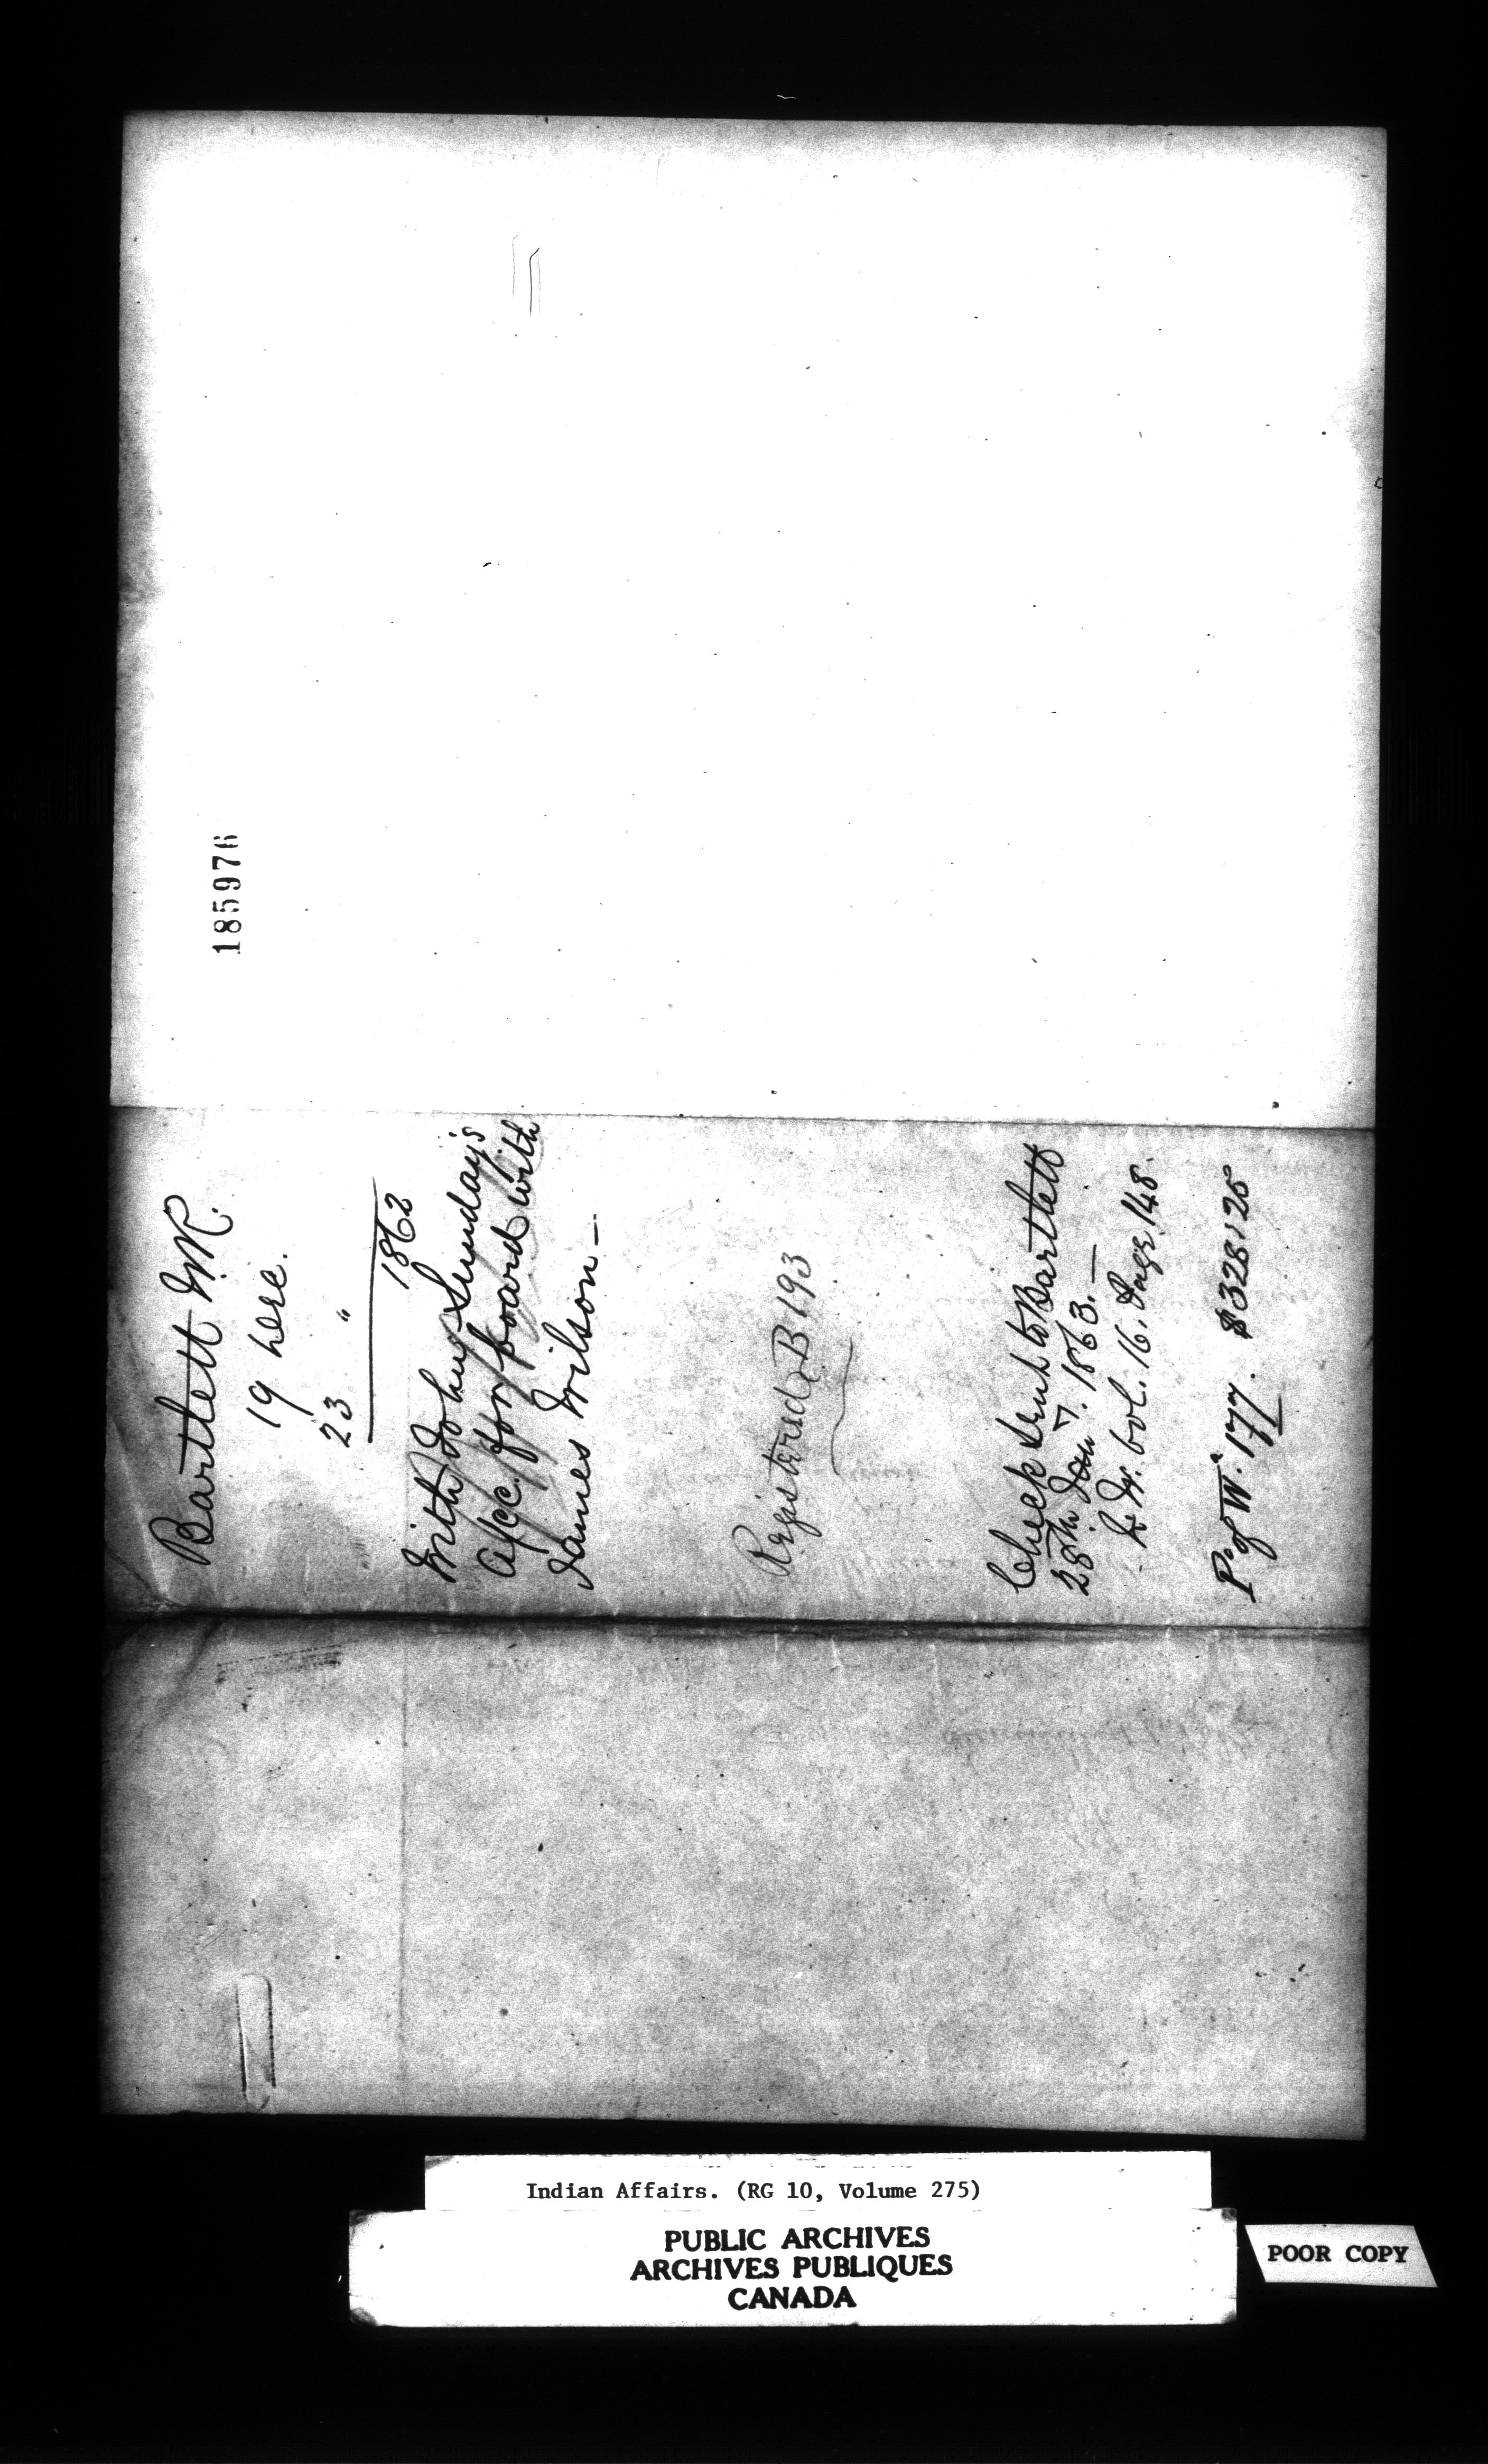 185976
Bartlett
19 Decr.
23 "
1862
With John Sunday's
a/cc. for board with
James Wilson —
Registered B 193
Check sent to Bartlett
28th Jany. 1863. —
16. Page 148.
P. of W. 177. $328.25
Indian Affairs. (RG 10, Volume 275)
PUBLIC ARCHIVES
ARCHIVES PUBLIQUES
CANADA
POOR COPY